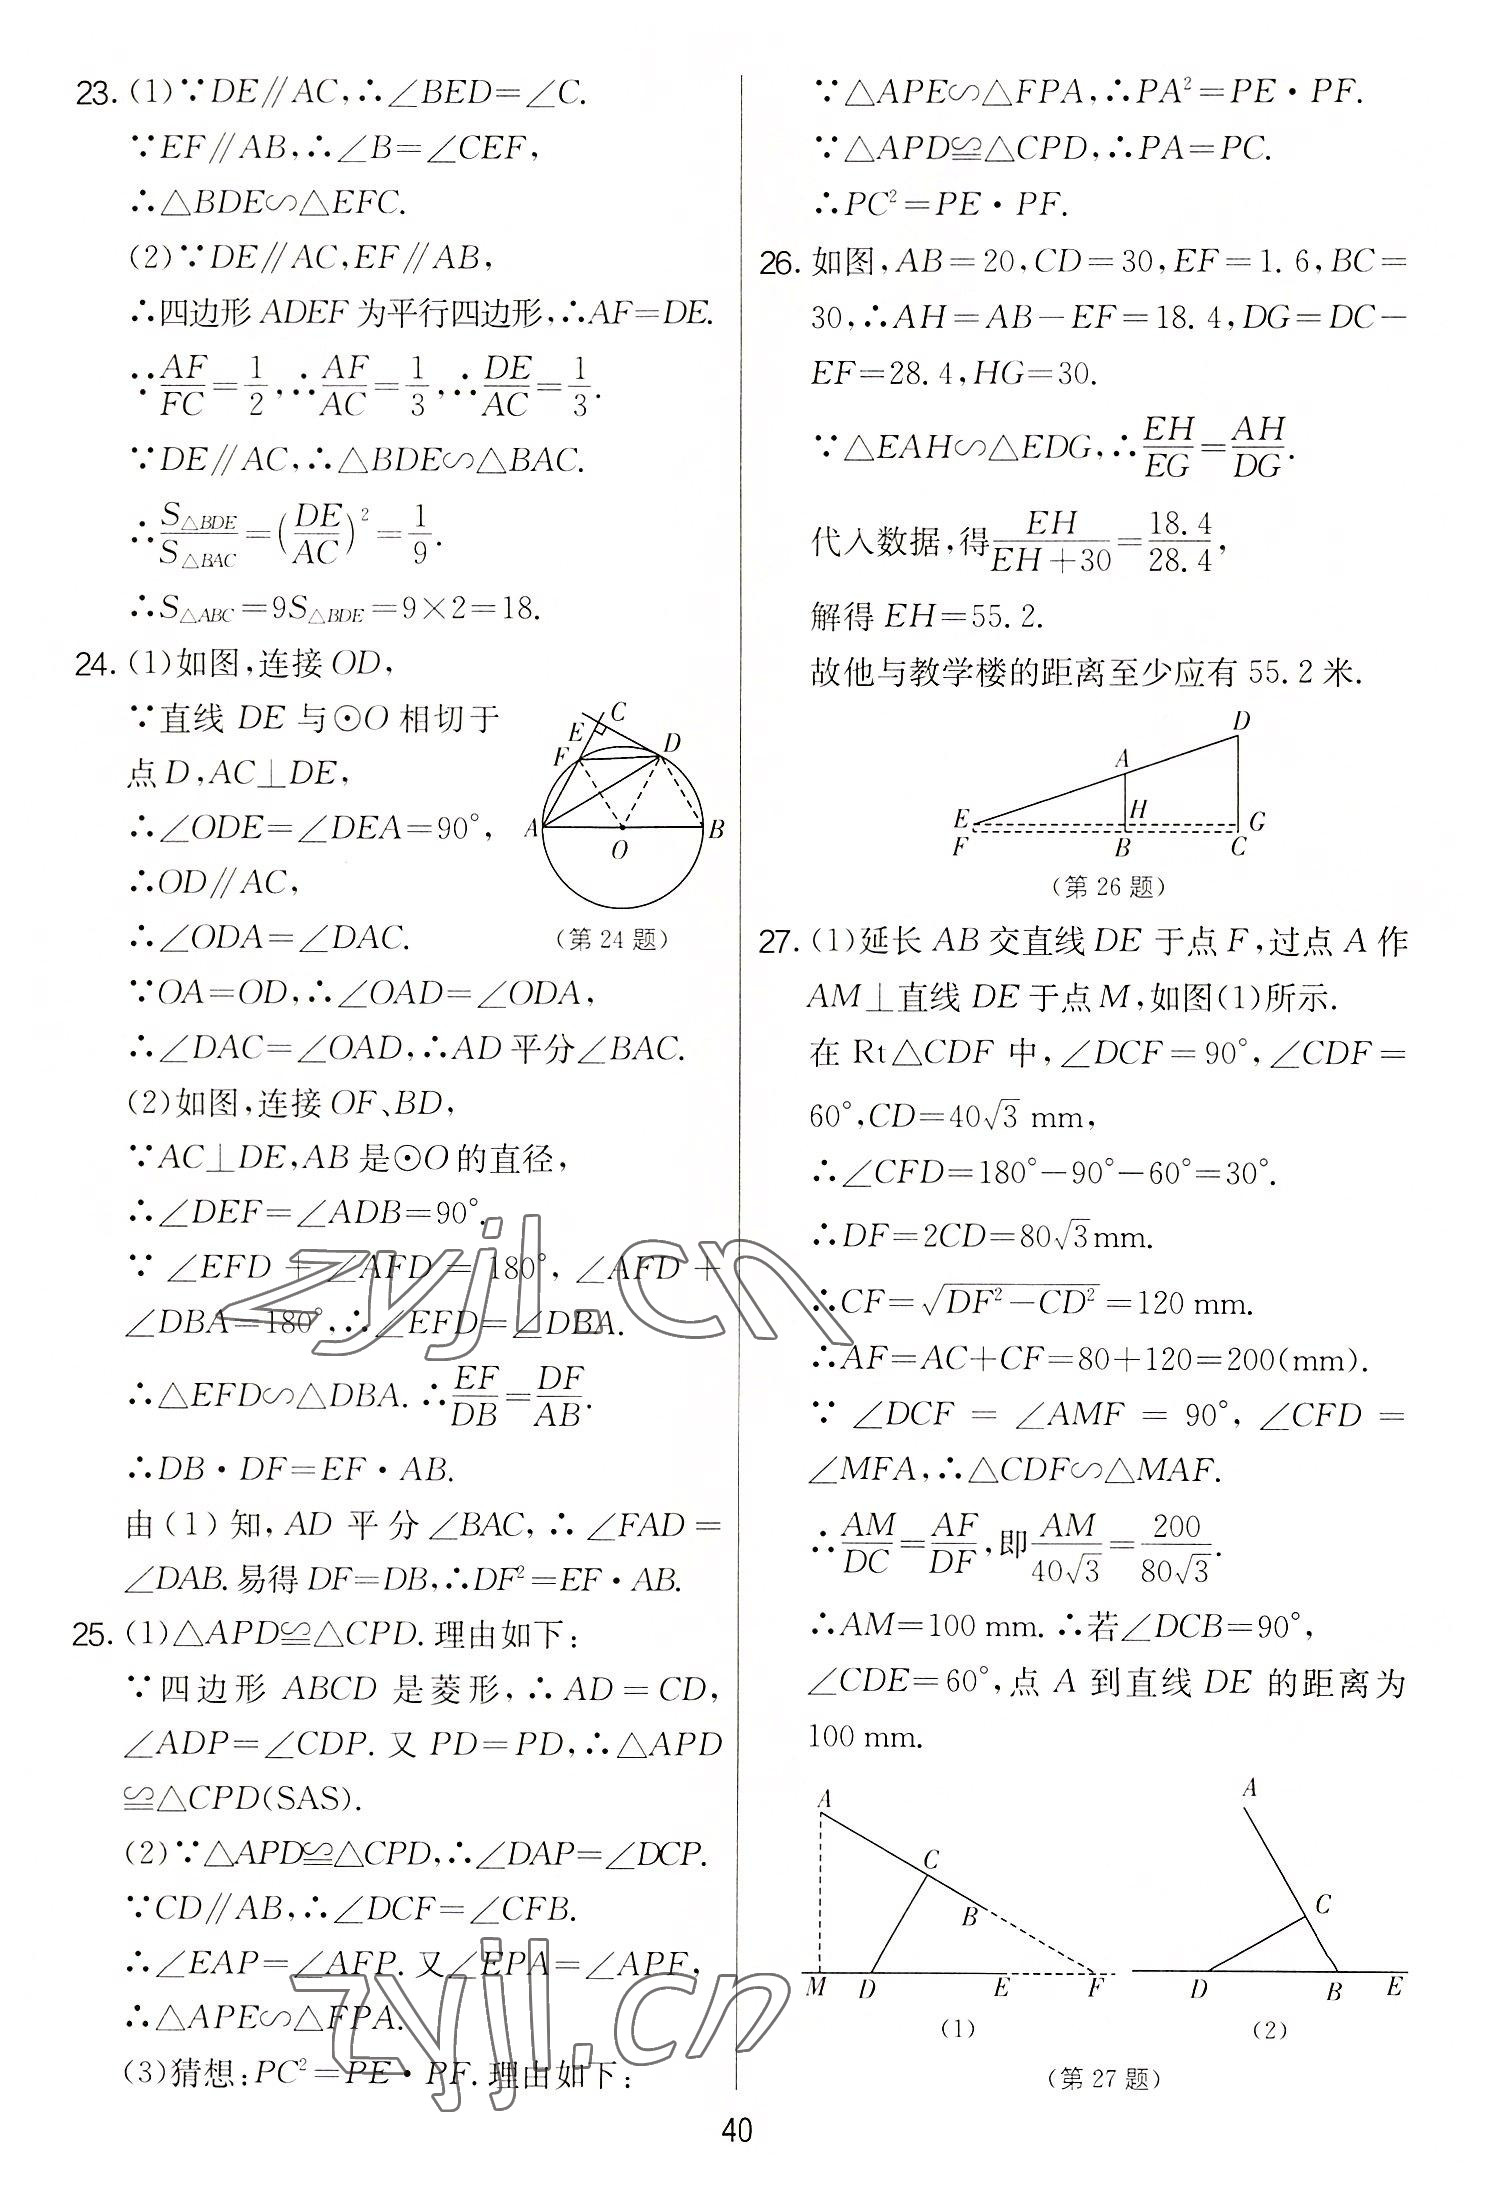 23. (1)∵DE∥AC,∴∠BED=∠C.
∵EF∥AB,∴∠B=∠CEF,
∴△BDE∽△EFC.
(2)∵DE∥AC,EF∥AB,
∴四边形 ADEF 为平行四边形,∴AF=DE.
∵AF/FC=1/2,∴AF/AC=1/3,∴DE/AC=1/3.
∵DE∥AC,∴△BDE∽△BAC.
∴S△BDE/S△BAC=(DE/AC)²=1/9.
∴S△ABC=9S△BDE=9×2=18.
24. (1)如图,连接OD,
∵直线 DE 与⊙O 相切于
点D,AC⊥DE,
∴∠ODE=∠DEA=90°,
∴OD∥AC,
∴∠ODA=∠DAC.
∵OA=OD,∴∠OAD=∠ODA,
∴∠DAC=∠OAD,∴AD平分∠BAC.
C
E
F
D
A
B
O
(第 24 题)
(2)如图,连接OF、BD,
∵AC⊥DE,AB是⊙O的直径,
∴∠DEF=∠ADB=90°.
∵ ∠EFD + ∠AFD = 180°, ∠AFD +
∠DBA=180°,∴∠EFD=∠DBA.
∴△EFD∽△DBA. ∴EF/DB=DF/AB.
∴DB·DF=EF·AB.
由(1)知,AD 平分∠BAC,∴∠FAD=
∠DAB.易得DF=DB,∴DF²=EF·AB.
25. (1)△APD≌△CPD.理由如下:
∵四边形 ABCD 是菱形,∴AD=CD,
∠ADP=∠CDP.又PD=PD,∴△APD
≌△CPD(SAS).
(2)∵△APD≌△CPD,∴∠DAP=∠DCP.
∵CD∥AB,∴∠DCF=∠CFB.
∴∠EAP=∠AFP.又∠EPA=∠APF,
∴△APE∽△FPA.
(3)猜想:PC²=PE·PF.理由如下:
∵△APE∽△FPA,∴PA²=PE·PF.
∵△APD≌△CPD,∴PA=PC.
∴PC²=PE·PF.
26. 如图,AB=20,CD=30,EF=1.6,BC=
30,∴AH=AB-EF=18.4,DG=DC-
EF=28.4,HG=30.
∵△EAH∽△EDG,∴EH/EG=AH/DG.
代入数据,得EH/(EH+30)=18.4/28.4,
解得EH=55.2.
故他与教学楼的距离至少应有55.2米.
D
A
E
H
G
F
B
C
(第 26 题)
27. (1)延长 AB 交直线 DE 于点 F,过点 A 作
AM⊥直线DE于点M,如图(1)所示.
在 Rt△CDF 中,∠DCF=90°,∠CDF=
60°,CD=40√3 mm,
∴∠CFD=180°-90°-60°=30°.
∴DF=2CD=80√3mm.
∴CF=√(DF²-CD²)=120 mm.
∴AF=AC+CF=80+120=200(mm).
∵ ∠DCF = ∠AMF = 90°, ∠CFD =
∠MFA,∴△CDF∽△MAF.
∴AM/DC=AF/DF,即AM/40√3=200/80√3.
∴AM=100 mm.∴若∠DCB=90°,
∠CDE=60°,点 A 到直线 DE 的距离为
100 mm.
A
C
B
M
D
E
F
(1)
A
C
D
B
E
(2)
(第 27 题)
zyjl.cn
zyjl.cn
40